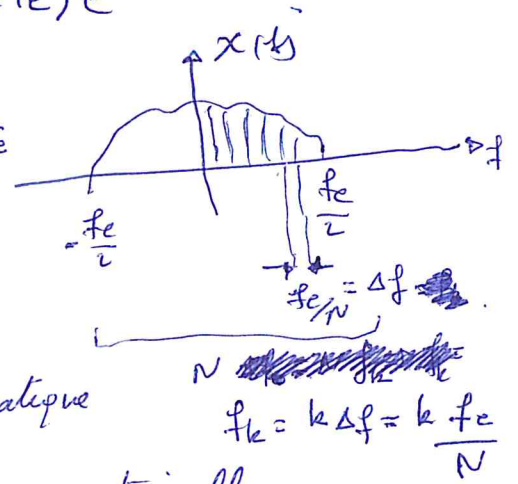 x(f)
f
-fe/2
fe/2
fe/N = Δf
N
atique
fk = k Δf = k fe/N